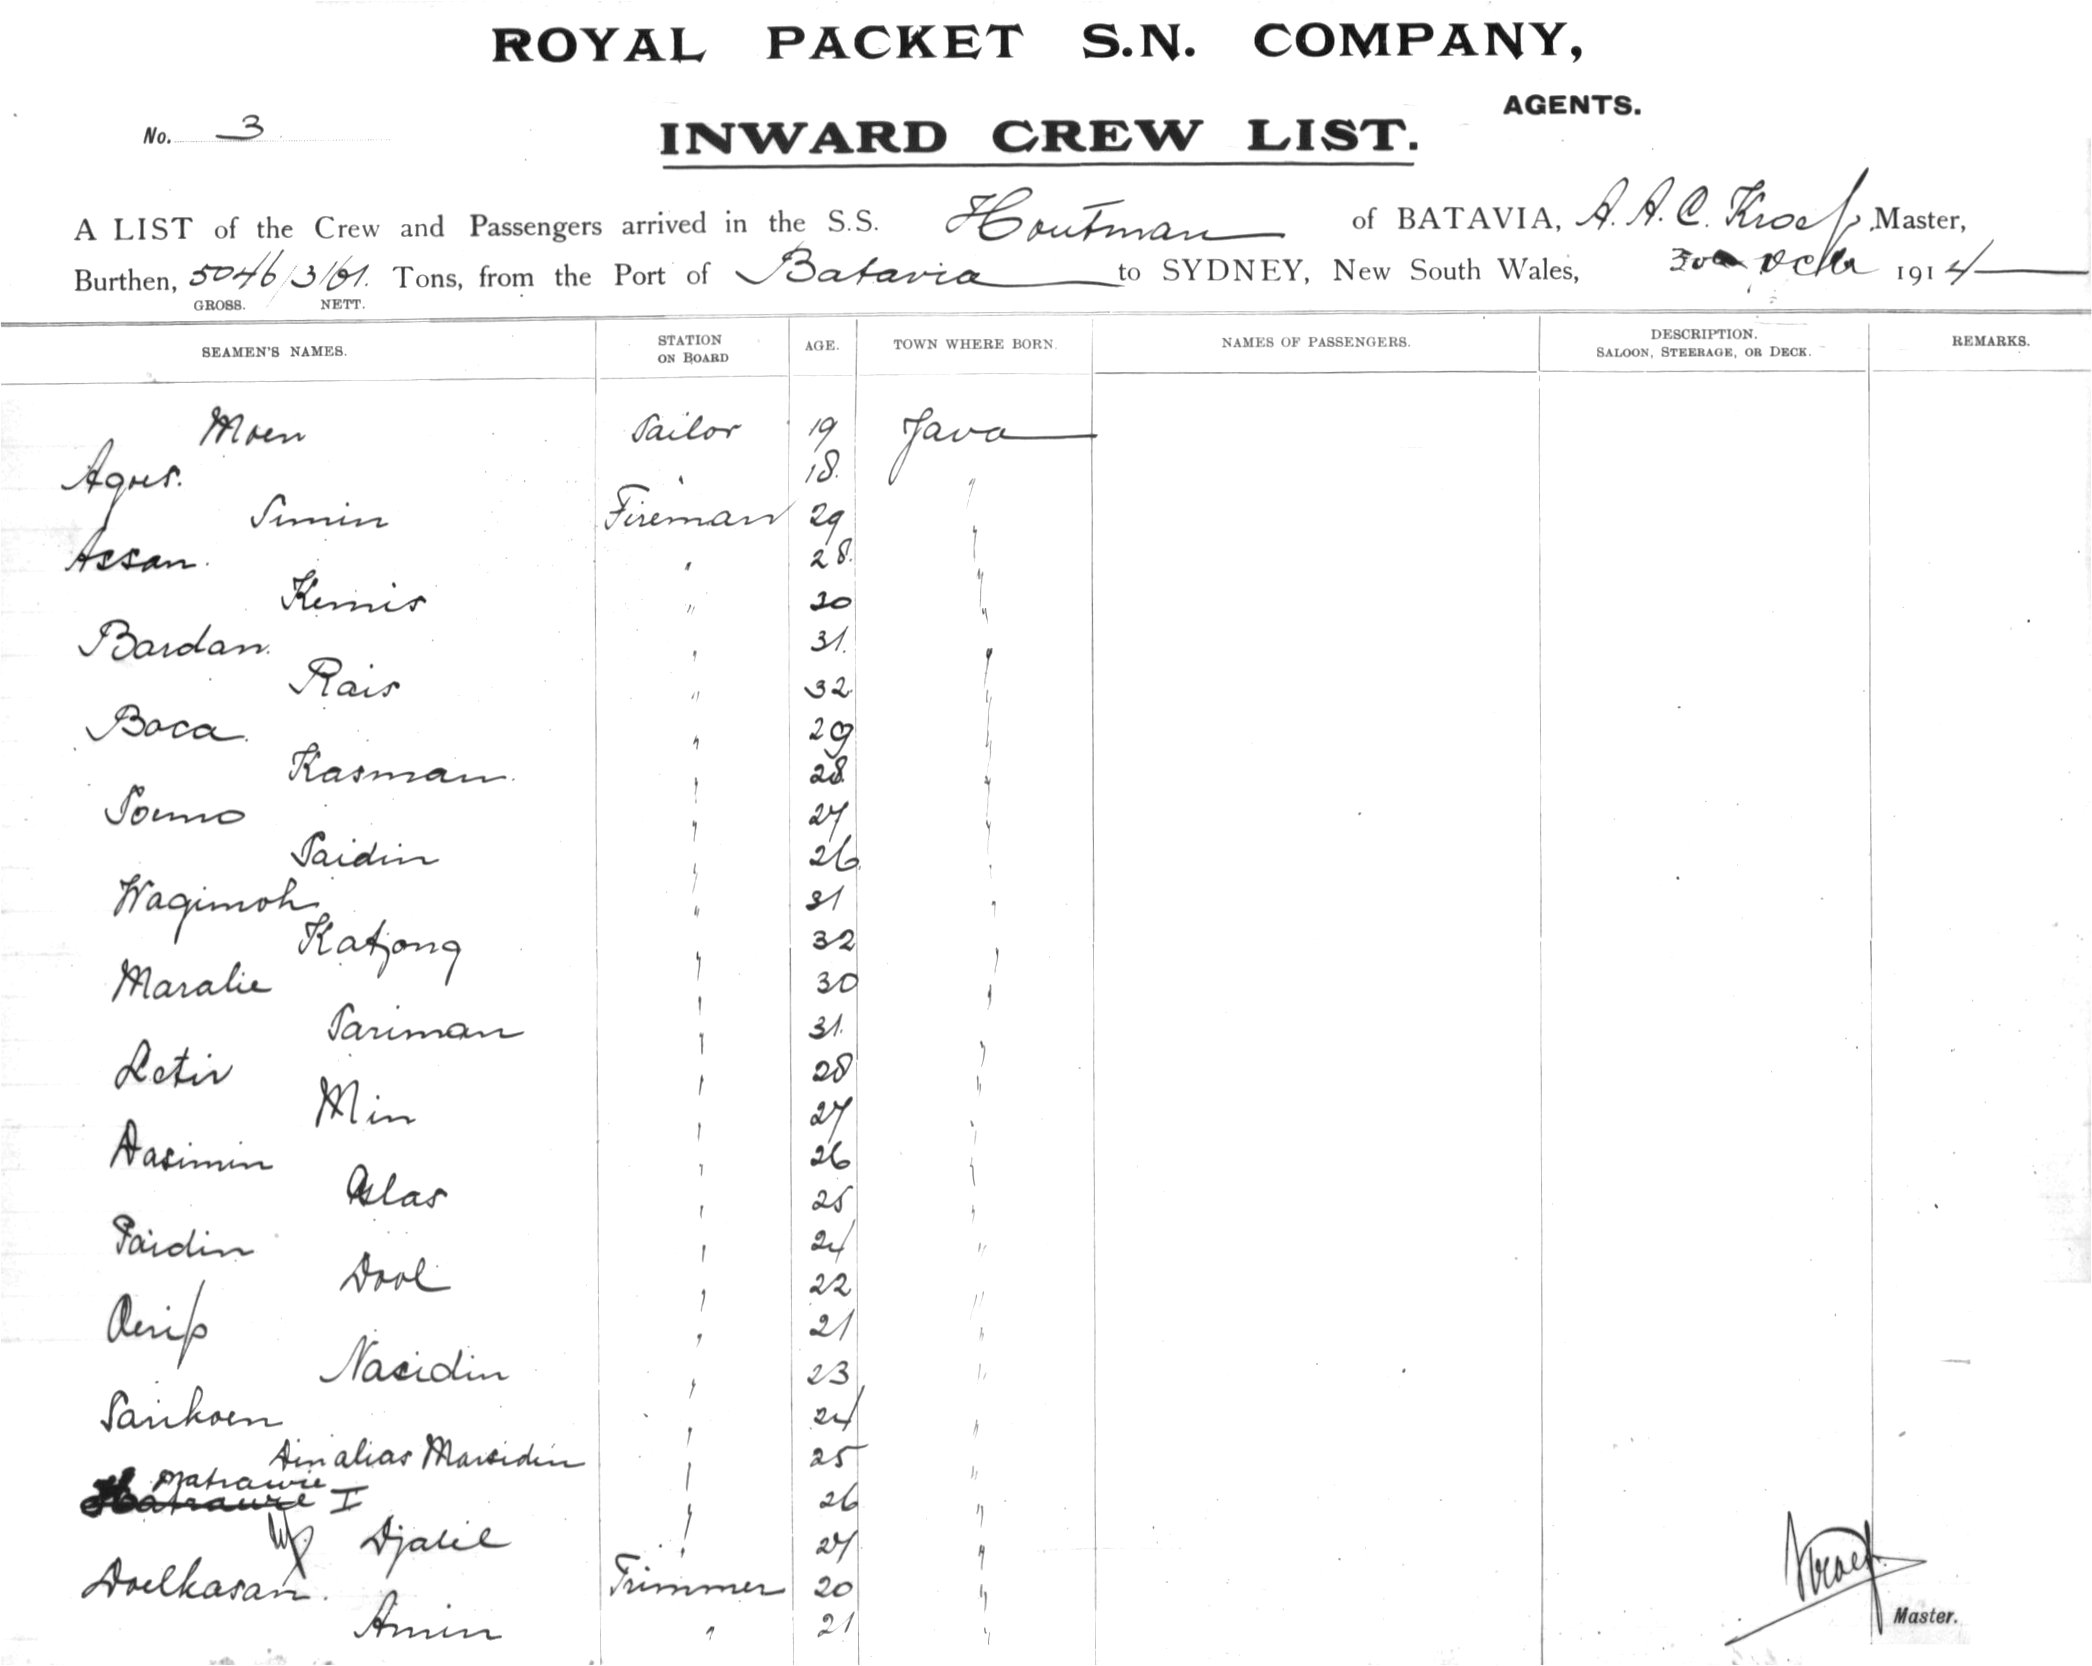 ROYAL PACKET S.N. COMPANY,
AGENTS.
No. 3
INWARD CREW LIST.
A LIST of the Crew and Passengers arrived in the S.S. Houtman of BATAVIA, A. A. C. Kroef, Master,
Burthen, 5046/3161. Tons, from the Port of Batavia to SYDNEY, New South Wales, 1914
GROSS. NETT.
SEAMEN'S NAMES. STATION ON BOARD AGE. TOWN WHERE BORN. NAMES OF PASSENGERS. DESCRIPTION. SALOON, STEERAGE, OR DECK. REMARKS.
Moen Sailor 19 Java
Agus. " 18. "
Simin Fireman 29 "
Assan. " 28. "
Kemis " 30 "
Bardan. " 31. "
Rais " 32. "
Boca. " 29 "
Kasman. " 28. "
Soemo " 27 "
Saidin " 26. "
Wagimoh " 31 "
Katjong " 32 "
Maralie " 30 "
Sariman " 31. "
Letir " 28 "
Min " 27 "
Dasimin " 26 "
Aslas " 25 "
Paidin " 24 "
Dool " 22 "
Oerip " 21 "
Nasidin " 23 "
Sarikoen " 24 "
Ain alias Marsidin " 25 "
Matrawie I " 26 "
Djalil " 27 "
Doelkasan. Trimmer 20 "
Amin " 21 "
Kroef
Master.